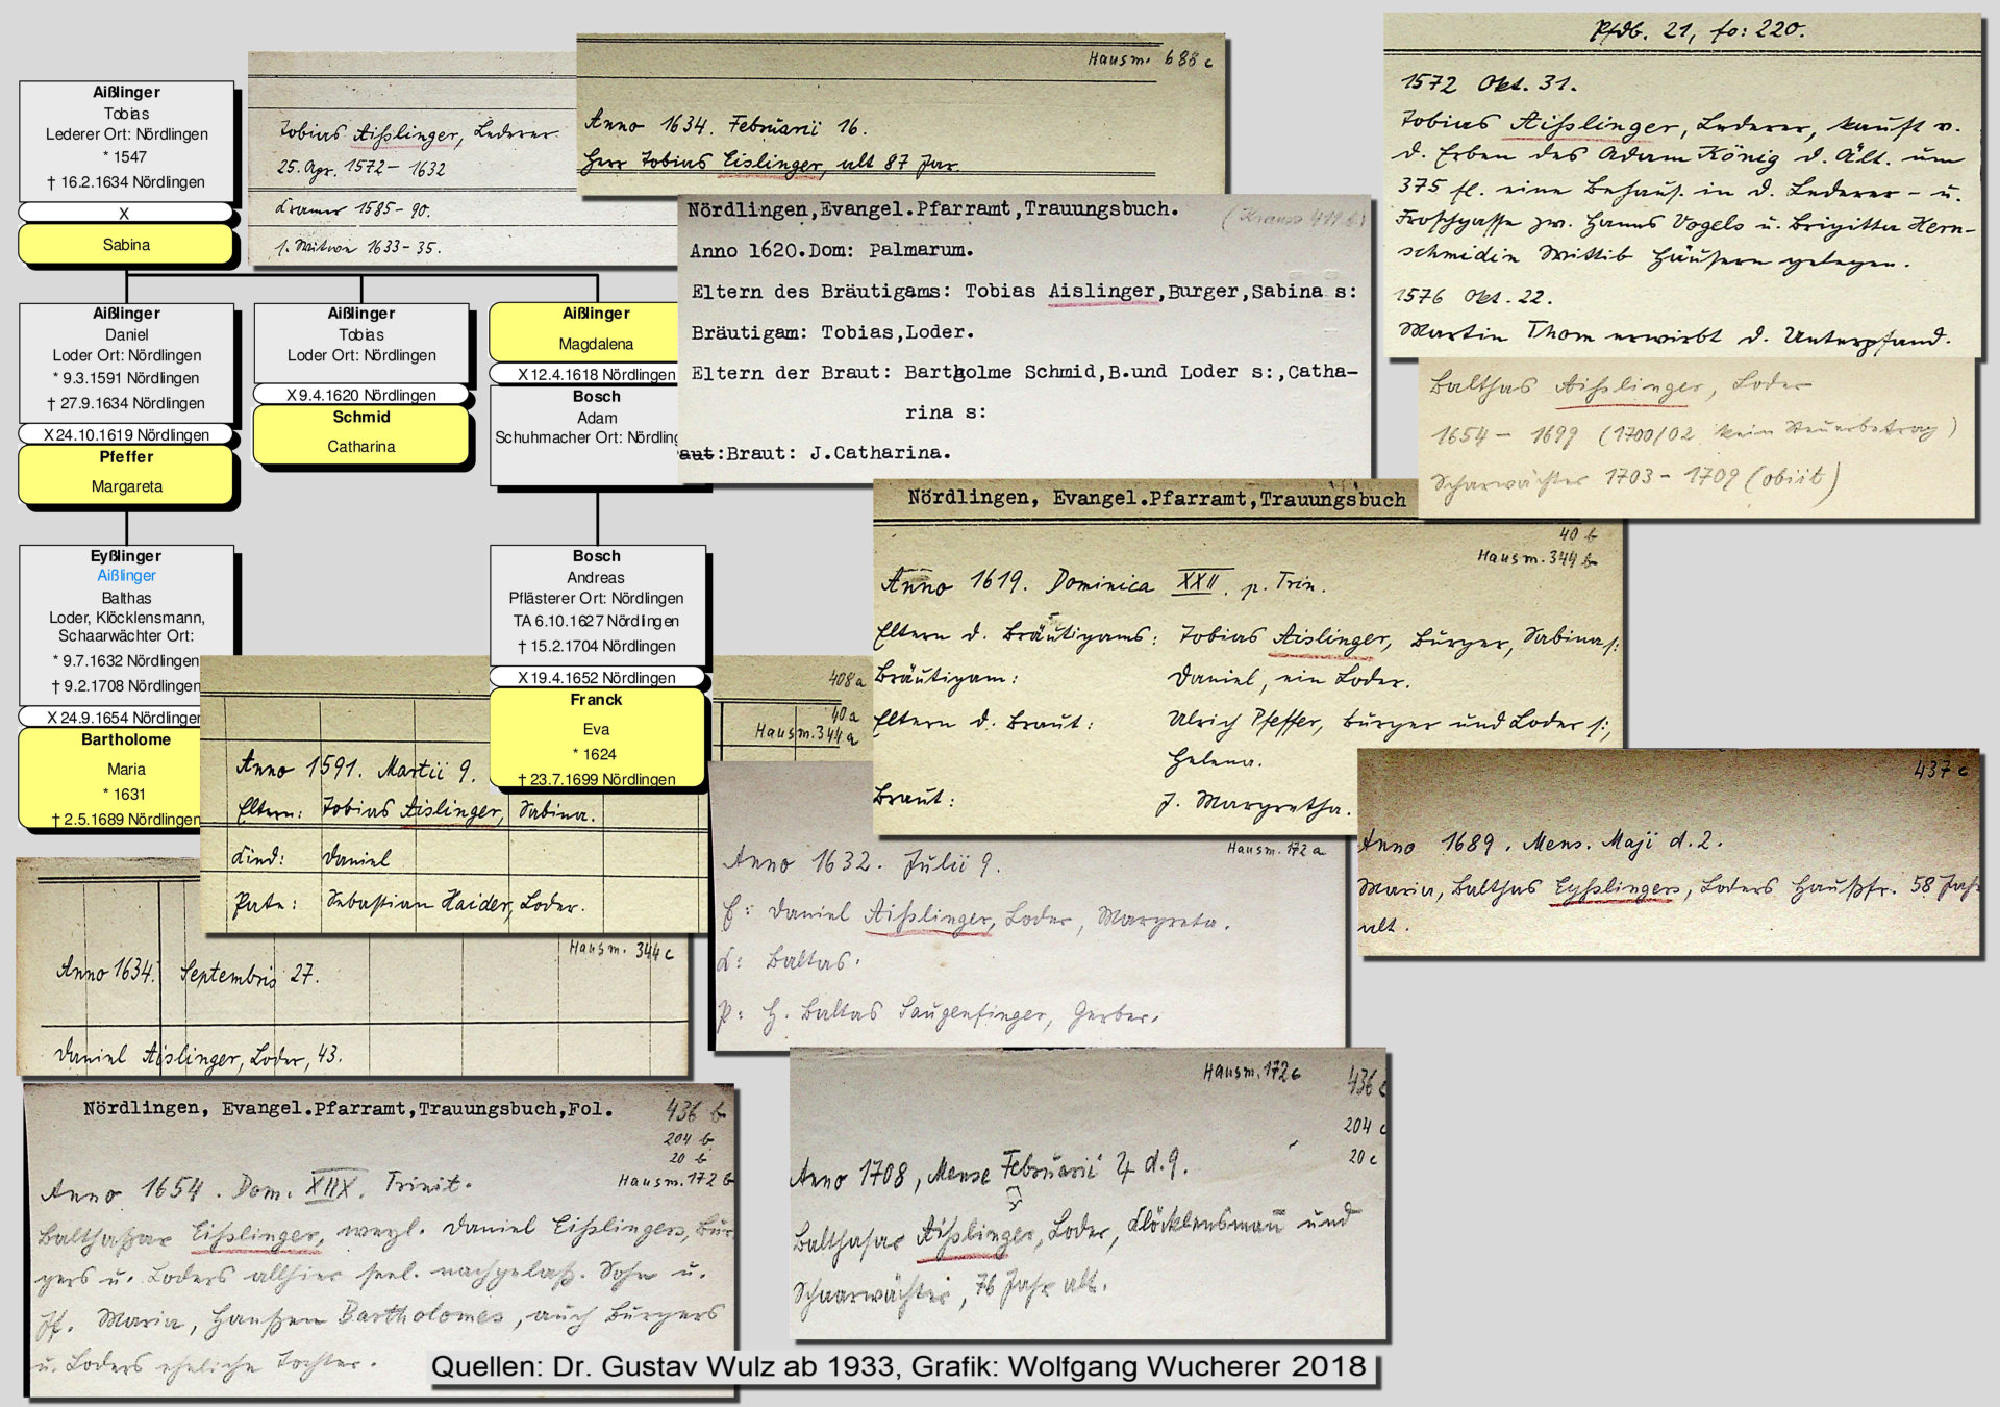 Aißlinger
Tobias
Lederer Ort: Nördlingen
* 1547
† 16.2.1634 Nördlingen
X
Sabina
Aißlinger
Daniel
Loder Ort: Nördlingen
* 9.3.1591 Nördlingen
† 27.9.1634 Nördlingen
X 24.10.1619 Nördlingen
Pfeffer
Margareta
Aißlinger
Tobias
Loder Ort: Nördlingen
X 9.4.1620 Nördlingen
Schmid
Catharina
Aißlinger
Magdalena
X 12.4.1618 Nördlingen
Bosch
Adam
Schuhmacher Ort: Nördling
Eyßlinger
Aißlinger
Balthas
Loder, Klöcklensmann,
Schaarwächter Ort:
* 9.7.1632 Nördlingen
† 9.2.1708 Nördlingen
X 24.9.1654 Nördlingen
Bartholome
Maria
* 1631
† 2.5.1689 Nördlingen
Bosch
Andreas
Pflästerer Ort: Nördlingen
TA 6.10.1627 Nördlingen
† 15.2.1704 Nördlingen
X 19.4.1652 Nördlingen
Franck
Eva
* 1624
† 23.7.1699 Nördlingen
Tobias Aißlinger, Lederer
25. Apr. 1572 – 1632
Kramer 1585–90.
s. Witwe 1633–35.
Hausm. 688 c
Anno 1634. Februarii 16.
Herr Tobias Eislinger, alt 87 Jar.
Nördlingen,Evangel.Pfarramt,Trauungsbuch.
(Krauss 419 b)
Anno 1620.Dom: Palmarum.
Eltern des Bräutigams: Tobias Aislinger,Burger,Sabina s:
Bräutigam: Tobias,Loder.
Eltern der Braut: Bartholme Schmid,B.und Loder s:,Catha-
rina s:
aut:Braut: J.Catharina.
Pfdb. 21, fo: 220.
1572 Okt. 31.
Tobias Aißlinger, Lederer, kauft v.
d. Erben des Adam König d. Ält. um
375 fl. eine Behaus. in d. Lederer- u.
Froschgasse zw. Hanns Vogels u. Brigitta Kern-
schmidin Wittib Häusern gelegen.
1576 Okt. 22.
Martin Thom erwirbt d. Unterpfand.
Balthas Aißlinger, Loder
1654 – 1699 (1700/02 kein Steuerbetrag)
Scharwächter 1703 – 1709 (obiit)
Nördlingen, Evangel.Pfarramt,Trauungsbuch
40 b
Hausm. 344 b
Anno 1619. Dominica XXII. p. Trin.
Eltern d. Bräutigams: Tobias Aislinger, Burger, Sabina s:
Bräutigam: Daniel, ein Loder.
Eltern d. Braut: Ulrich Pfeffer, Burger und Loder s:,
Helena.
Braut: J. Margretha.
408 a
40 a
Hausm. 344 a
Anno 1591. Martii 9.
Eltern: Tobias Aislinger, Sabina.
Kind: Daniel
Pate: Sebastian Haider, Loder.
Hausm. 172 a
Anno 1632. Julii 9.
E: Daniel Aißlinger, Loder, Margreta.
K: Baltas.
P: H. Baltas Saugenfinger, Gerber.
437 c
Anno 1689. Mens. Maji d. 2.
Maria, Balthas Eyßlingers, Loders Haußfr. 58 Jahr
alt.
Hausm. 344 c
Anno 1634. Septembris 27.
Daniel Aislinger, Loder, 43.
Nördlingen, Evangel.Pfarramt,Trauungsbuch,Fol.
436 b
204 b
20 b
Hausm. 172 b
Anno 1654. Dom. XIIX. Trinit.
Balthaßar Eißlinger, weyl. Daniel Eißlingers, Bur-
gers u. Loders allhier seel. nachgelaß. Sohn u.
Jf. Maria, Hanßen Bartholomes, auch Burgers
u. Loders eheliche Tochter.
Hausm. 172 c
436 c
204 c
20 c
Anno 1708, Mense Februarii d. 9.
Balthasar Aißlinger, Loder, Klöcklensmann und
Schaarwächter, 76 Jahr alt.
Quellen: Dr. Gustav Wulz ab 1933, Grafik: Wolfgang Wucherer 2018